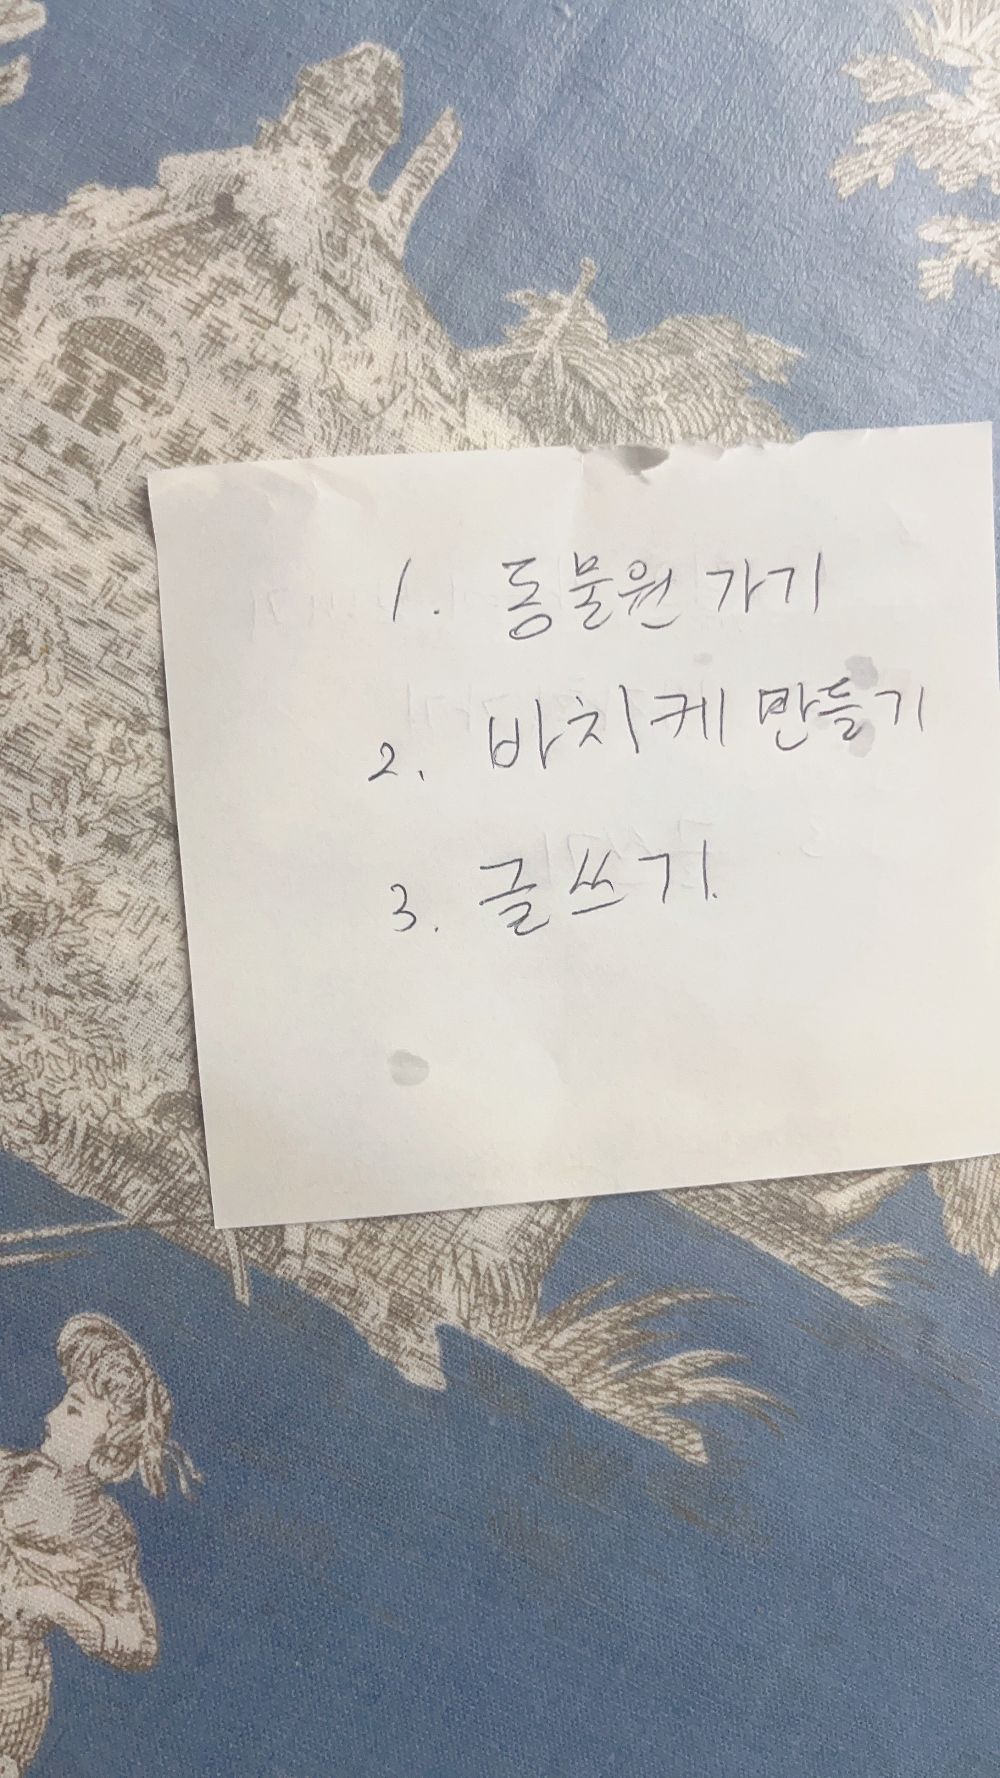 1. 동물원 가기
2. 바치케 만들기
3. 글쓰기.